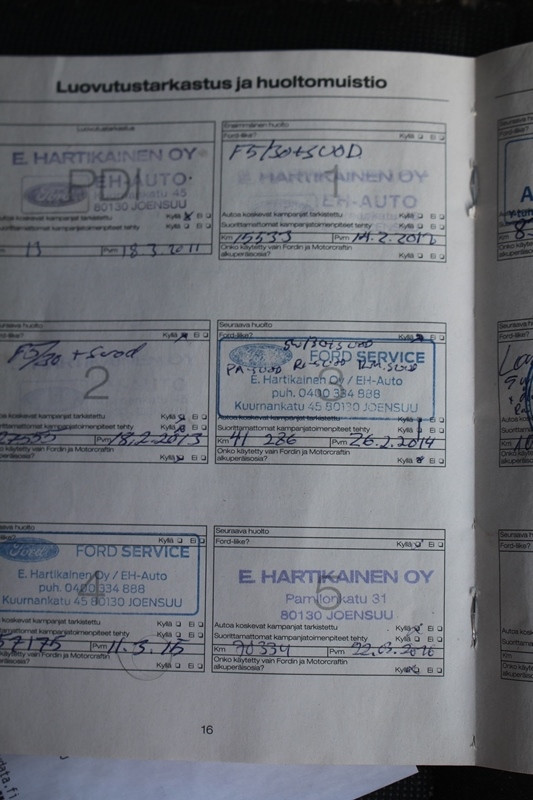 Luovutustarkastus ja huoltomuistio
Luovutustarkastus
E. HARTIKAINEN OY
PDI
Ford
EH-AUTO
katu 45
80130 JOENSUU
Autoa koskevat kampanjat tarkistettu Kyllä Ei
Suorittamattomat kampanjatoimenpiteet tehty Kyllä Ei
13 Pvm 18.3.2011
Ensimmäinen huolto
Ford-liike? Kyllä Ei
F5/30+SUOD
1
E. HARTIKAINEN OY
EH-AUTO
JOENSUU
Autoa koskevat kampanjat tarkistettu Kyllä Ei
Suorittamattomat kampanjatoimenpiteet tehty Kyllä Ei
Km 15533 Pvm 14.2.2012
Onko käytetty vain Fordin ja Motorcraftin Kyllä Ei
alkuperäisosia?
Seuraava huolto
Ford-liike? Kyllä Ei
F5/30 + suod
2
tarkistettu Kyllä Ei
Suorittamattomat kampanjatoimenpiteet tehty Kyllä Ei
27555 Pvm 18.2.2013
käytetty vain Fordin ja Motorcraftin Kyllä Ei
alkuperäisosia?
Seuraava huolto
Ford-liike? Kyllä Ei
5w/30+suod
FORD SERVICE
PA-SUOD RA-SUOD R.M.SUOD
3
E. Hartikainen Oy / EH-Auto
puh. 0400 334 888
Kuurnankatu 45 80130 JOENSUU
Suorittamattomat kampanjatoimenpiteet tehty Kyllä Ei
Km 41 286 Pvm 26.2.2014
Onko käytetty vain Fordin ja Motorcraftin
alkuperäisosia? Kyllä Ei
Seuraava huolto
Kyllä Ei
Ford FORD SERVICE
4
E. Hartikainen Oy / EH-Auto
puh. 0400 334 888
Kuurnankatu 45 80130 JOENSUU
koskevat kampanjat tarkistettu Kyllä Ei
Suorittamattomat kampanjatoimenpiteet tehty Kyllä Ei
Pvm 11.3.15
käytetty vain Fordin ja Motorcraftin Kyllä Ei
alkuperäisosia?
Seuraava huolto
Ford-liike? Kyllä Ei
E. HARTIKAINEN OY
5
Pamilonkatu 31
80130 JOENSUU
Autoa koskevat kampanjat tarkistettu Kyllä Ei
Suorittamattomat kampanjatoimenpiteet tehty Kyllä Ei
Km 70334 Pvm 22.03.2016
Onko käytetty vain Fordin ja Motorcraftin
alkuperäisosia? Kyllä Ei
16